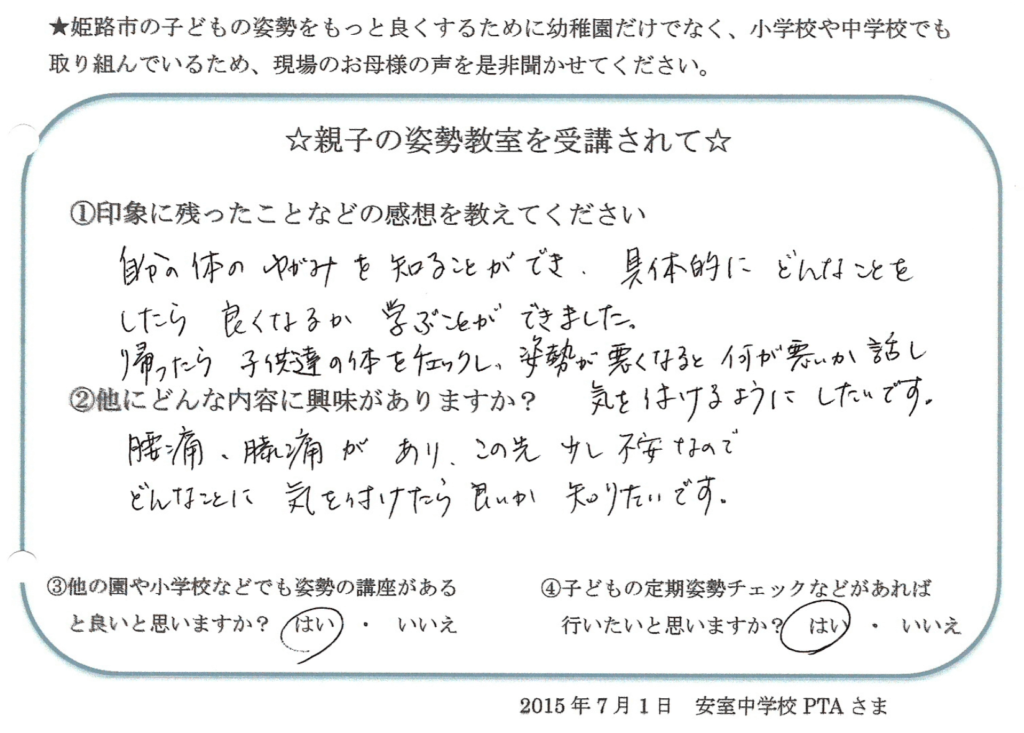 ★姫路市の子どもの姿勢をもっと良くするために幼稚園だけでなく、小学校や中学校でも
取り組んでいるため、現場のお母様の声を是非聞かせてください。
☆親子の姿勢教室を受講されて☆
①印象に残ったことなどの感想を教えてください
自分の体の ゆがみ を 知ることができ、具体的に どんなことを
したら 良くなるか 学ぶことが できました。
帰ったら 子供達の体をチェックし、姿勢が悪くなると何が悪いか話し
気を付けるように したいです。
②他にどんな内容に興味がありますか？
腰痛、膝痛が あり、この先 少し 不安なので
どんなことに 気を付けたら 良いか 知りたいです。
③他の園や小学校などでも姿勢の講座がある
と良いと思いますか？ はい ・ いいえ
④子どもの定期姿勢チェックなどがあれば
行いたいと思いますか？ はい ・ いいえ
2015年7月1日 安室中学校PTAさま